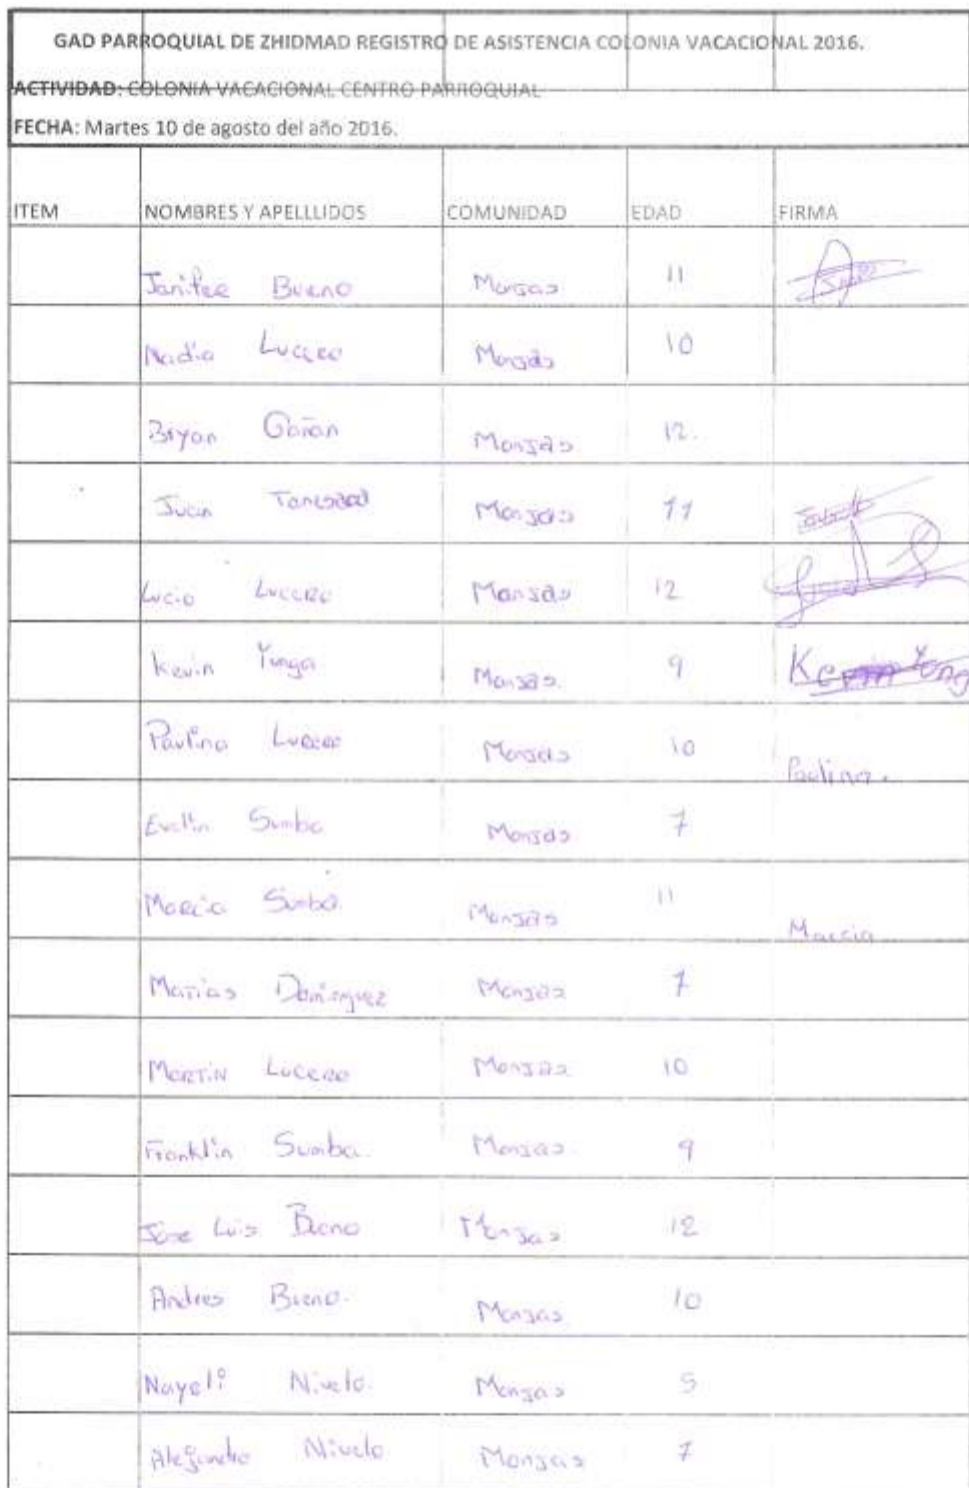 GAD PARROQUIAL DE ZHIDMAD REGISTRO DE ASISTENCIA COLONIA VACACIONAL 2016.
ACTIVIDAD: COLONIA VACACIONAL CENTRO PARROQUIAL
FECHA: Martes 10 de agosto del año 2016.
ITEM NOMBRES Y APELLLIDOS COMUNIDAD EDAD FIRMA
Bueno Monjas 11
Nadia Lucero Monjas 10
Bryan Gañan Monjas 12.
Juan Monjas 11
Lucio Lucero Monjas 12
Kevin Yunga Monjas. 9 Kevin Yung
Paulina Lucero Monjas 10 Paulina.
Evelin Sumba Monjas 7
Marcia Sumba. Monjas 11 Marcia
Matias Dominguez Monjas 7
Martin Lucero Monjas 10
Franklin Sumba. Monjas. 9
Jose Luis Bueno Monjas 12
Andres Bueno. Monjas 10
Nayeli Nivelo. Monjas 5
Alejandro Nivelo Monjas 7